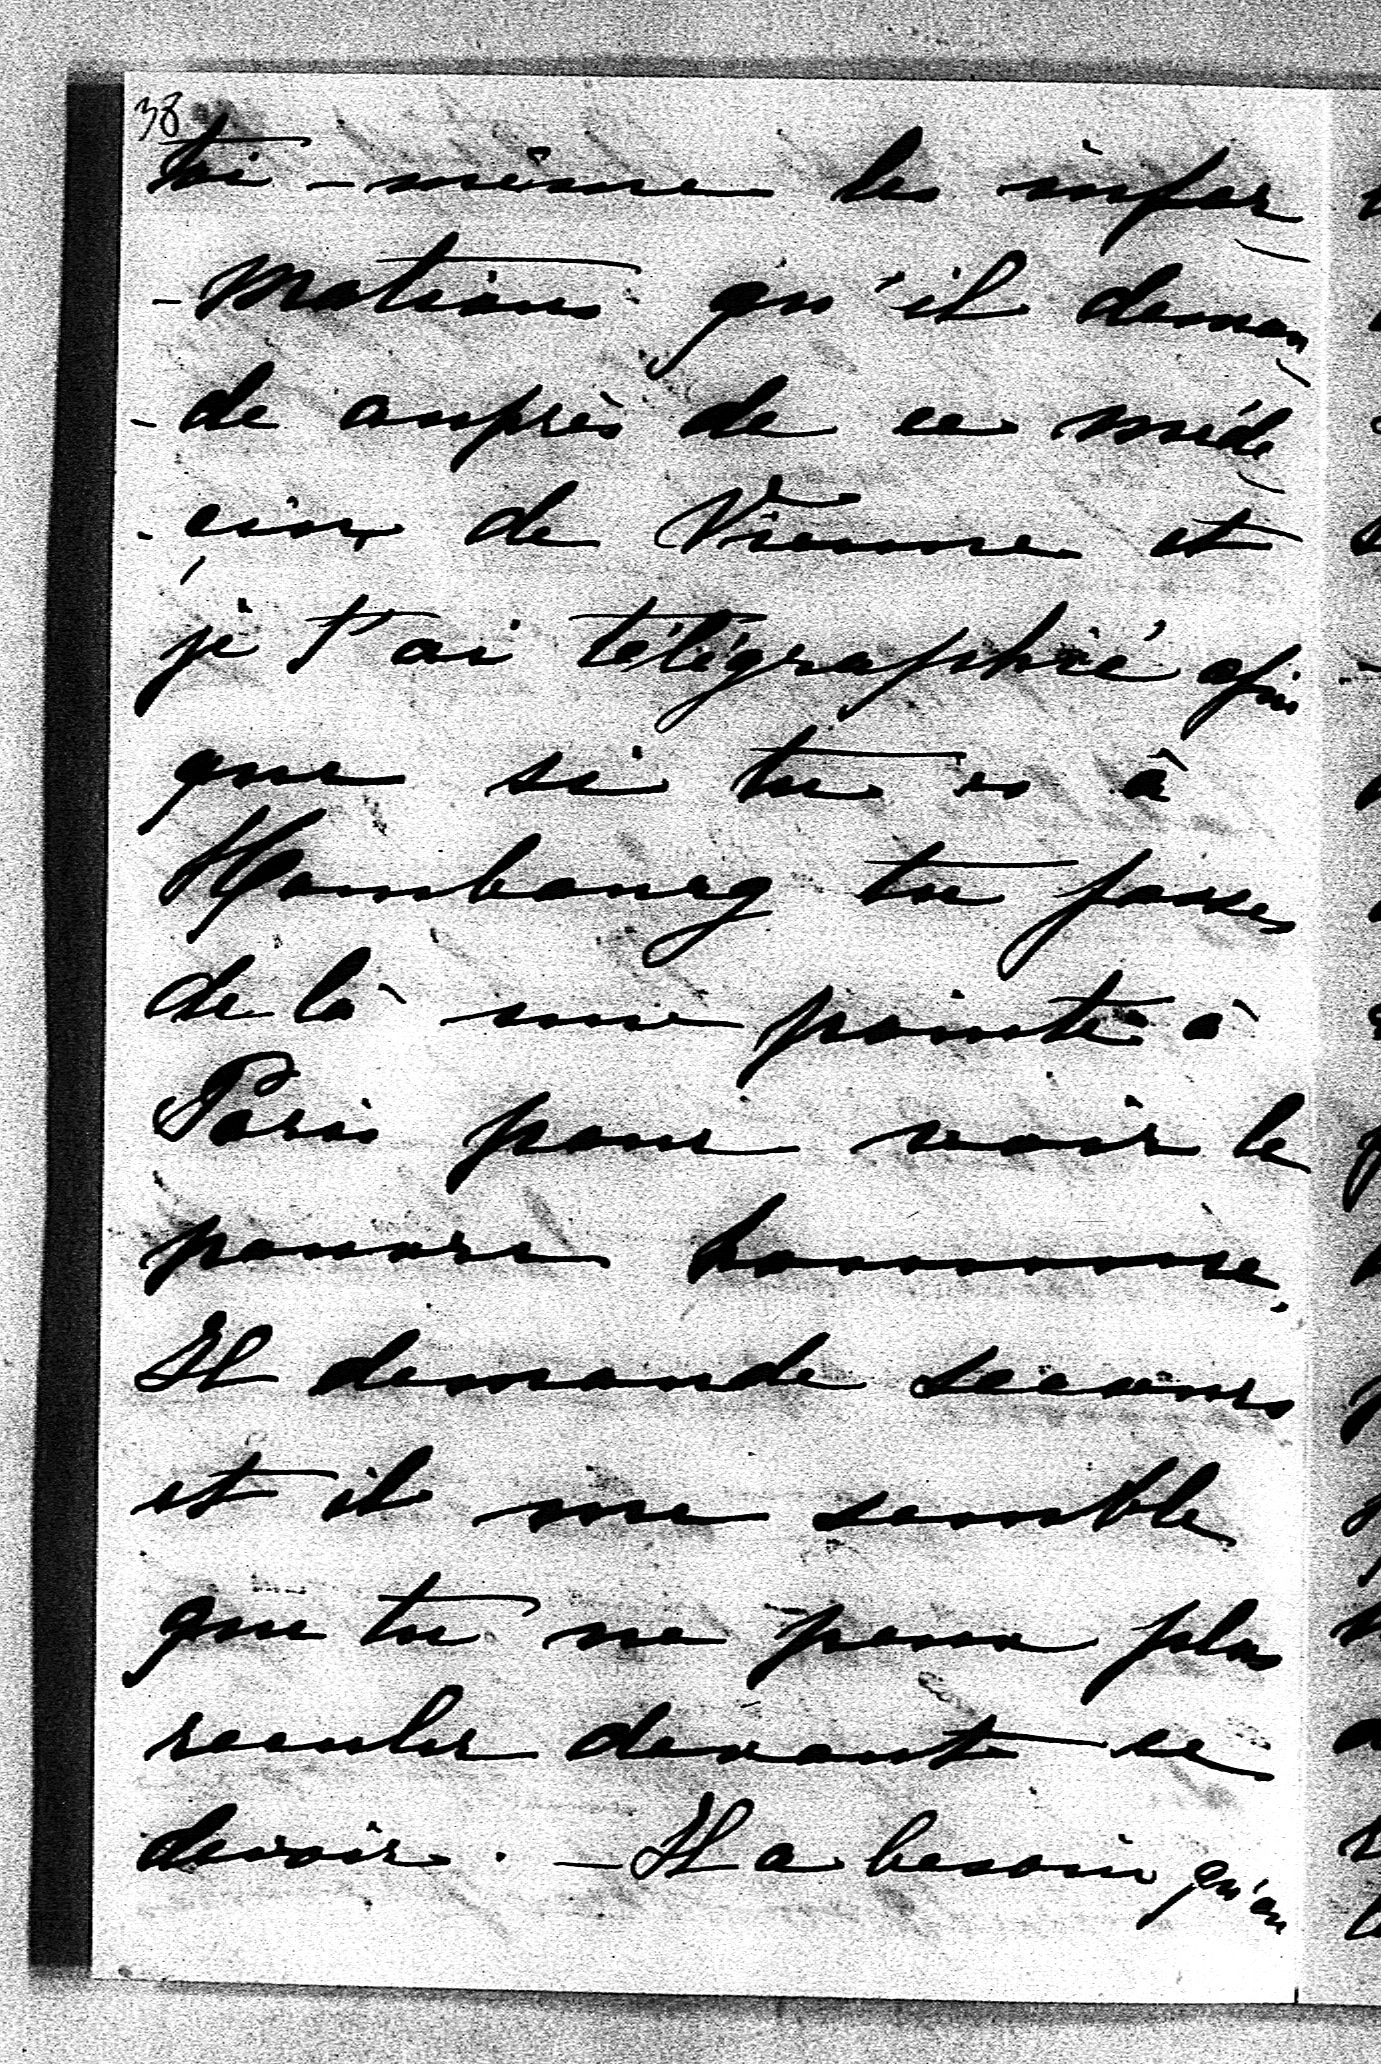 38
toi-même les infor
-mations qu'il deman
-de auprès de ce méde
-cin de Vienne et
je t'ai télégraphié afin
que si tu es à
Hambourg tu fasses
de là une pointe à
Paris pour voir le
pauvre homme.
Il demande secours
et il me semble
que tu ne peux plus
reculer devant ce
devoir. - Il a besoin qu'on